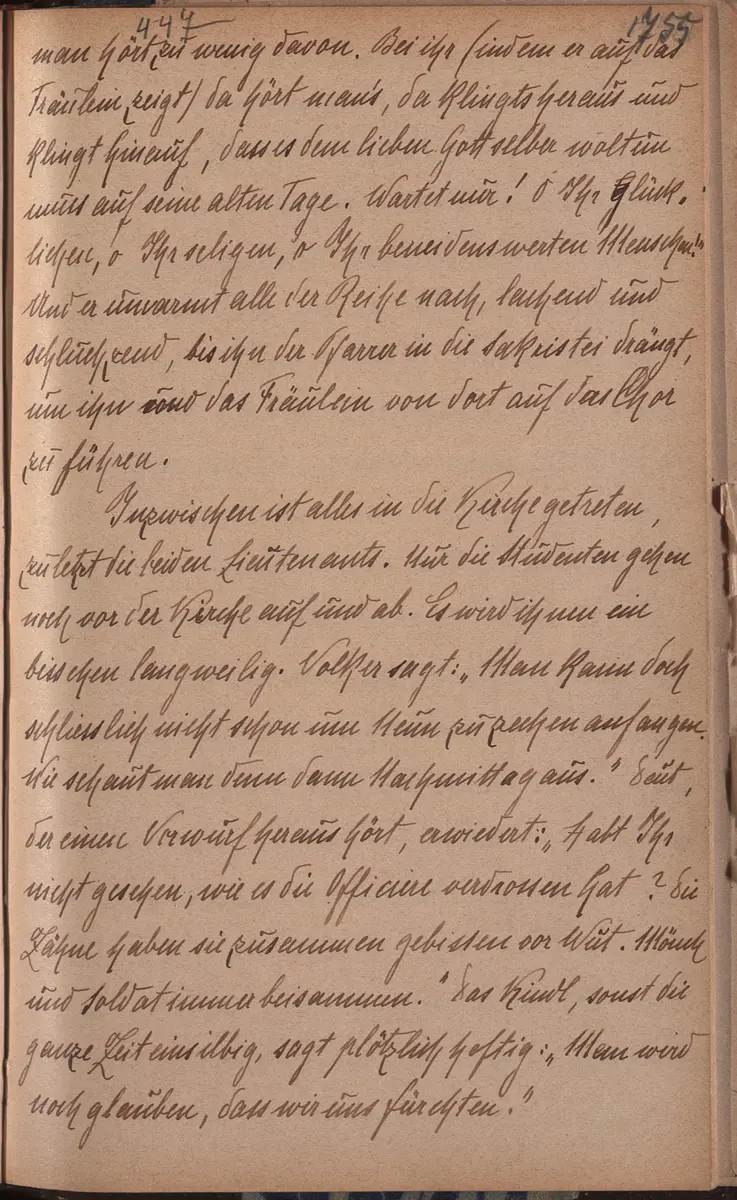 447
1755
man hört zu wenig davon. Bei ihr (indem er auf das
Fräulein zeigt) da hört man's, da klingts heraus und
klingt hinauf, dass es dem lieben Gott selber woltun
muss auf seine alten Tage. Wartet nur! O Ihr Glück-
lichen, o Ihr seligen, o Ihr beneidenswerten Menschen!"
Und er umarmt alle der Reihe nach, lachend und
schluchzend, bis ihn der Pfarrer in die Sakristei drängt,
um ihn und das Fräulein von dort auf das Chor
zu führen.
Inzwischen ist alles in die Kirche getreten,
zuletzt die beiden Lieutenants. Nur die Studenten gehen
noch vor der Kirche auf und ab. Es wird ihnen ein
bisschen langweilig. Volker sagt: „Man kann doch
schliesslich nicht schon um Neun zu zechen anfangen.
Wie schaut man denn dann Nachmittag aus."
der einen Vorwurf heraus hört, erwiedert: „Habt Ihr
nicht gesehen, wie es die Officiere verdrossen hat? Die
Zähne haben sie zusammen gebissen vor Wut. Mönch
und Soldat immer beisammen." Das Kindl, sonst die
ganze Zeit einsilbig, sagt plötzlich heftig: „Man wird
noch glauben, dass wir uns fürchten."